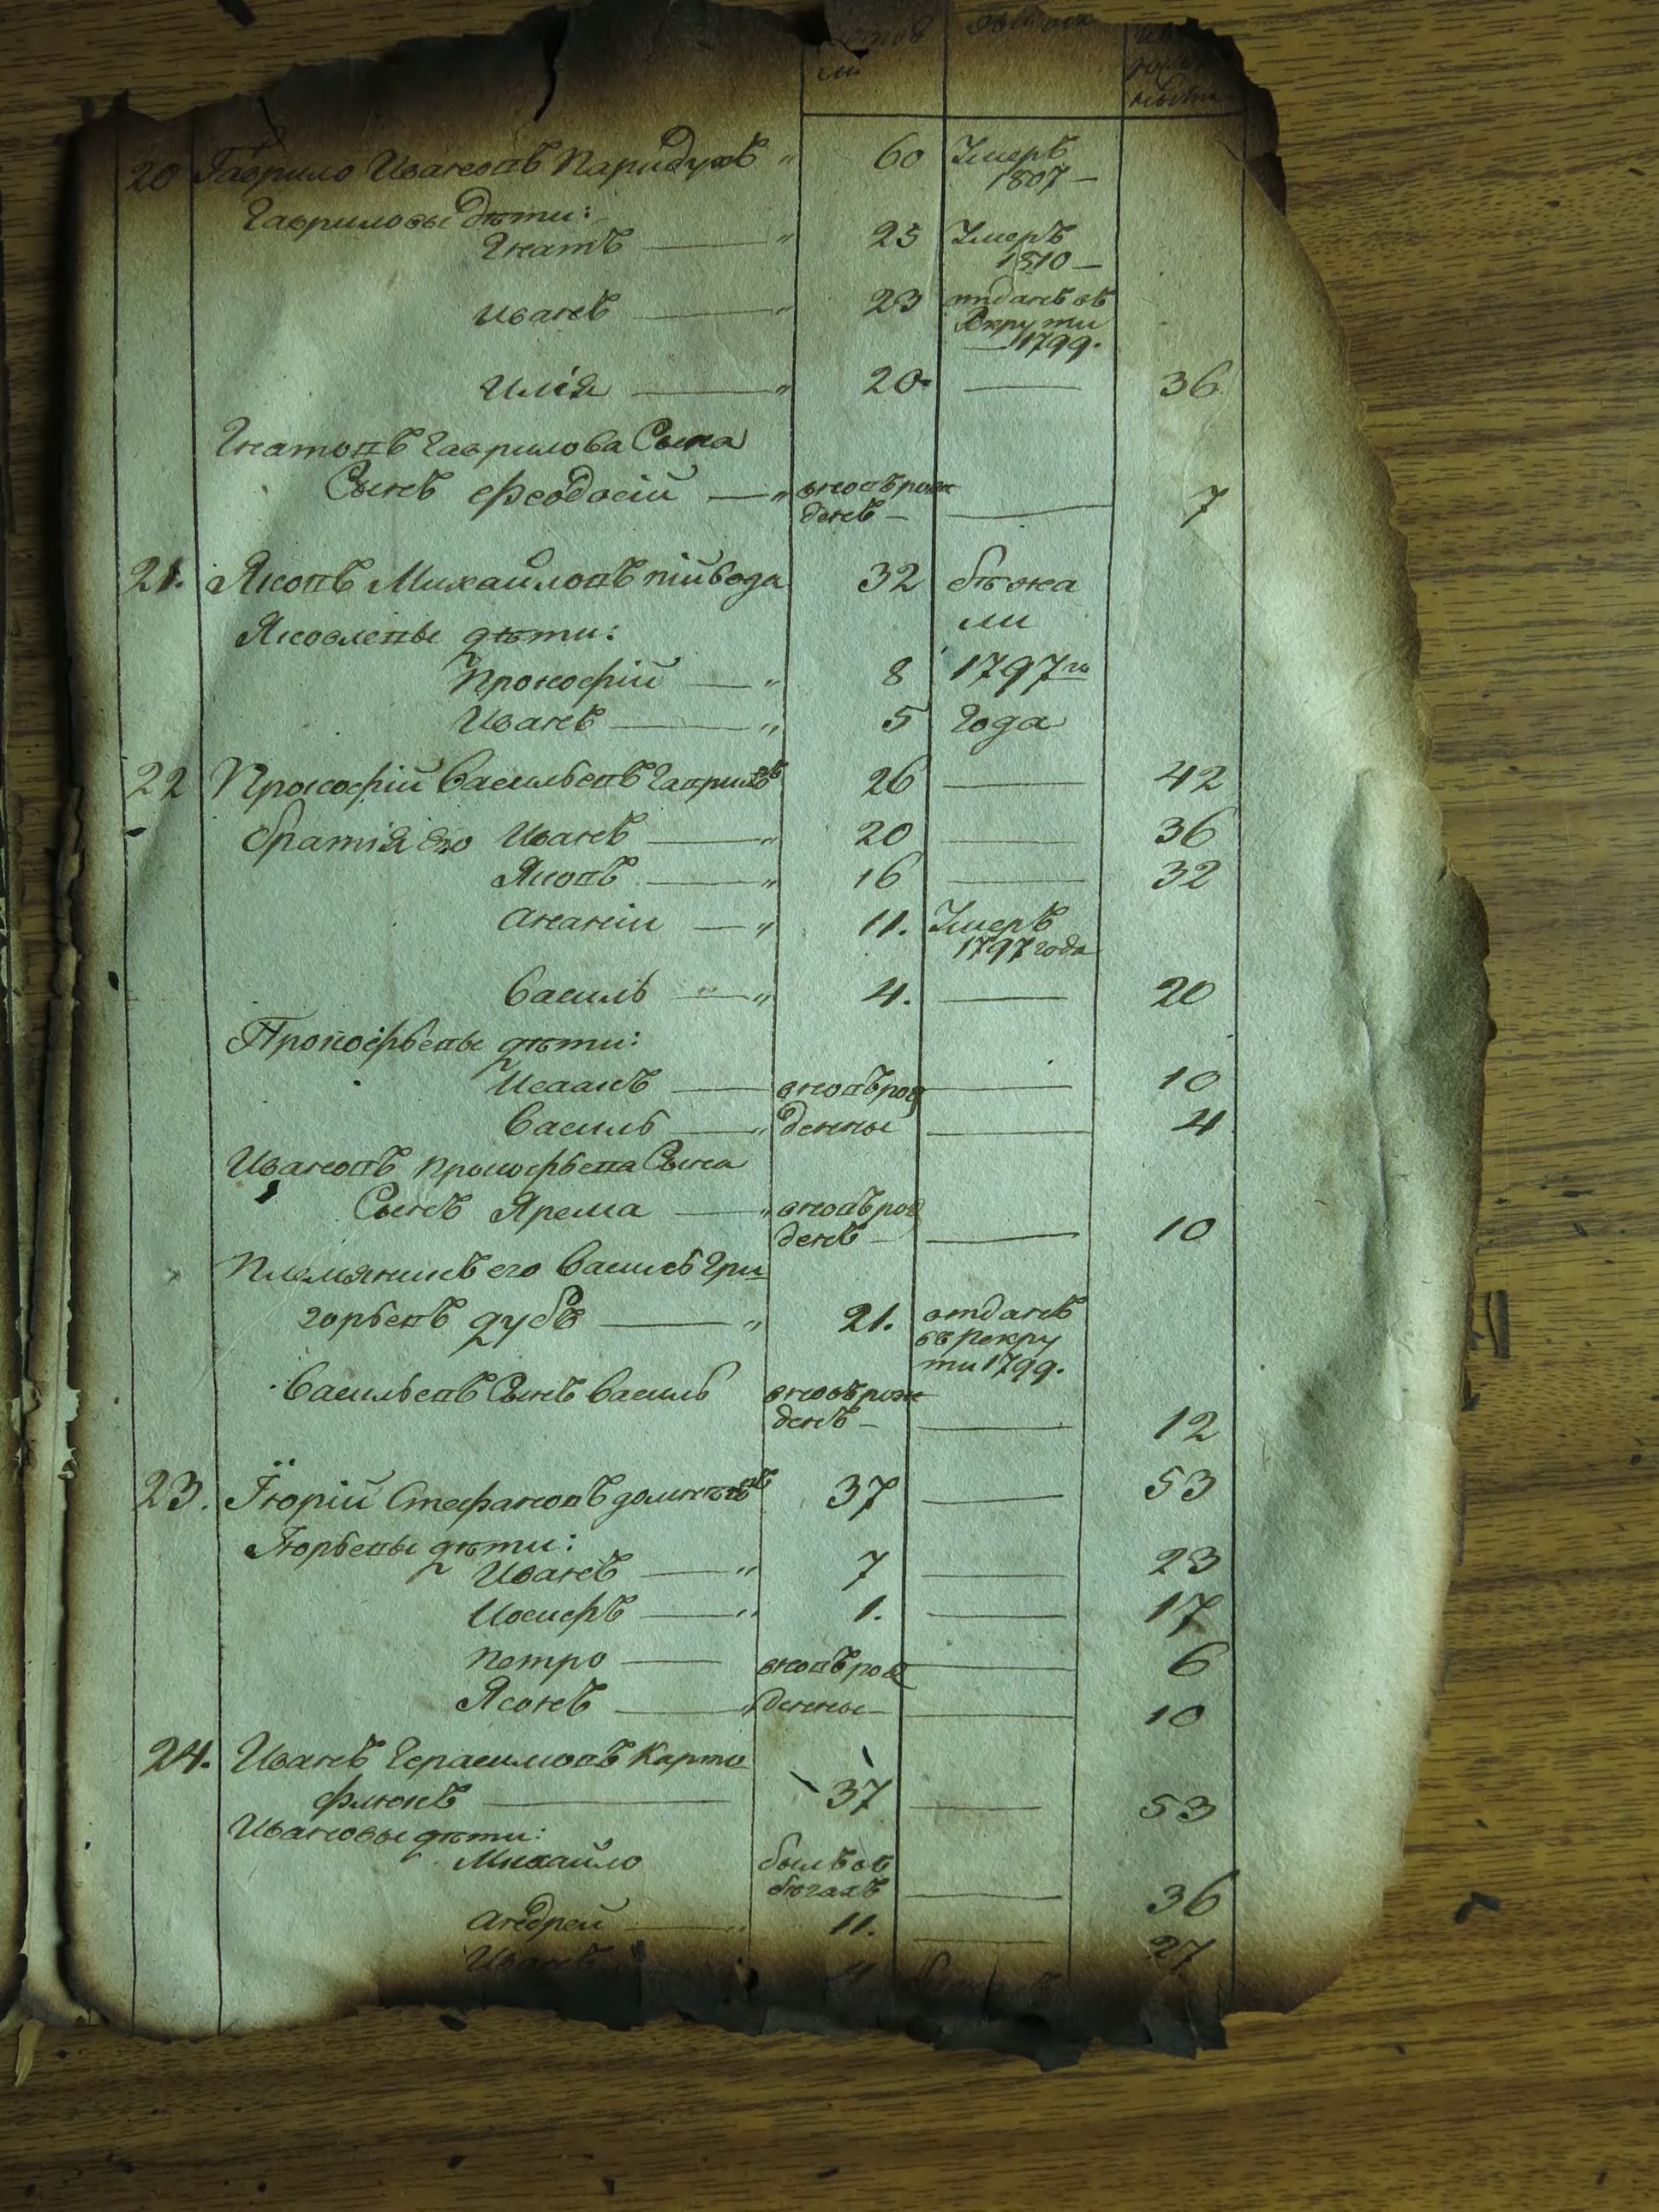 20 Гаврило Ивановъ Паридухъ " 60 Умеръ
1807 —
Гавриловы дѣти:
Гнатъ — " 25 Умеръ
1810 —
Иванъ — " 23 отданъ въ
Рекрути
1799.
Илія — " 20. — 36.
Гнатовъ Гаврилова Сына
Сынъ Феодосій — " вновърож
денъ — — 7
21. Яковъ Михайловъ 32 бѣжа
Яковлевы дѣти: ли
Прокофій — " 8 1797го
Иванъ — " 5 года
22 Прокофій Васильевъ Гавриловъ 26 — 42
братія его Иванъ — " 20 — 36
Яковъ — " 16 — 32
Ананіи — " 11. Умеръ
1797 года
Василь — " 4. — 20
Прокофьевы дѣти:
Исаакъ — вновърож — 10
Василь — " денны — 4
Ивановъ Прокофьева Сына
Сынъ Ярема — " вновърож
денъ — — 10
Племянникъ его Василь Гри
горьевъ дубъ — " 21. отданъ
въ рекру
ти 1799.
Васильевъ Сынъ Василь вновърож
денъ — — 12
23. Юрій Стефановъ 37 — 53
Юрьевы дѣти:
Иванъ — " 7 — 23
Иосифъ — " 1. — 17
Петро — вновърож — 6
Ясонъ — " денны — — 10
24. Иванъ Герасимовъ Карто
флюкъ — 37 — 53
Ивановы дѣти:
Михайло былъ въ
бѣгахъ — 36
Андрей — " 11. — 27
Иванъ 4